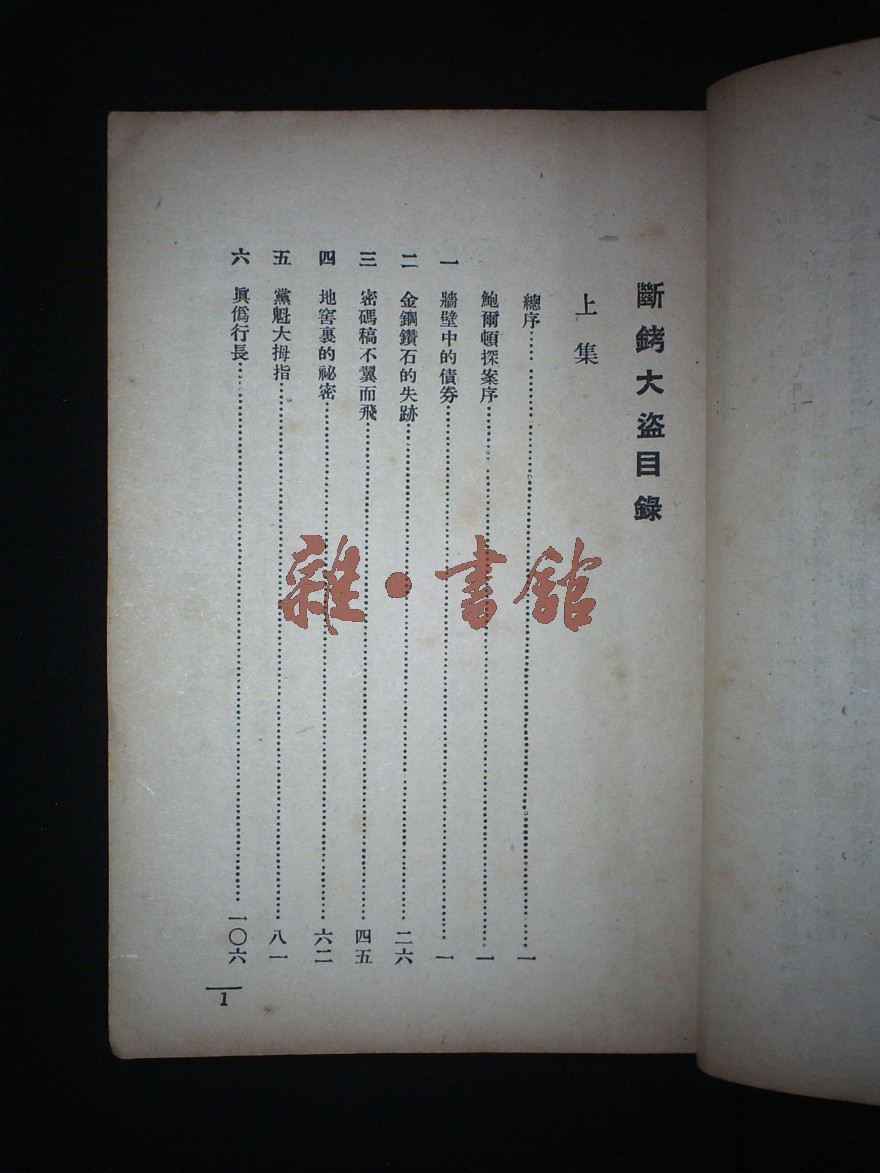 斷銬大盜目錄
上集
總序……一
鮑爾頓探案序……一
一 牆壁中的債券……一
二 金鋼鑽石的失跡……二六
三 密碼稿不翼而飛……四五
四 地窖裏的祕密……六二
五 黨魁大拇指……八一
六 眞僞行長……一〇六
1
雜·書館